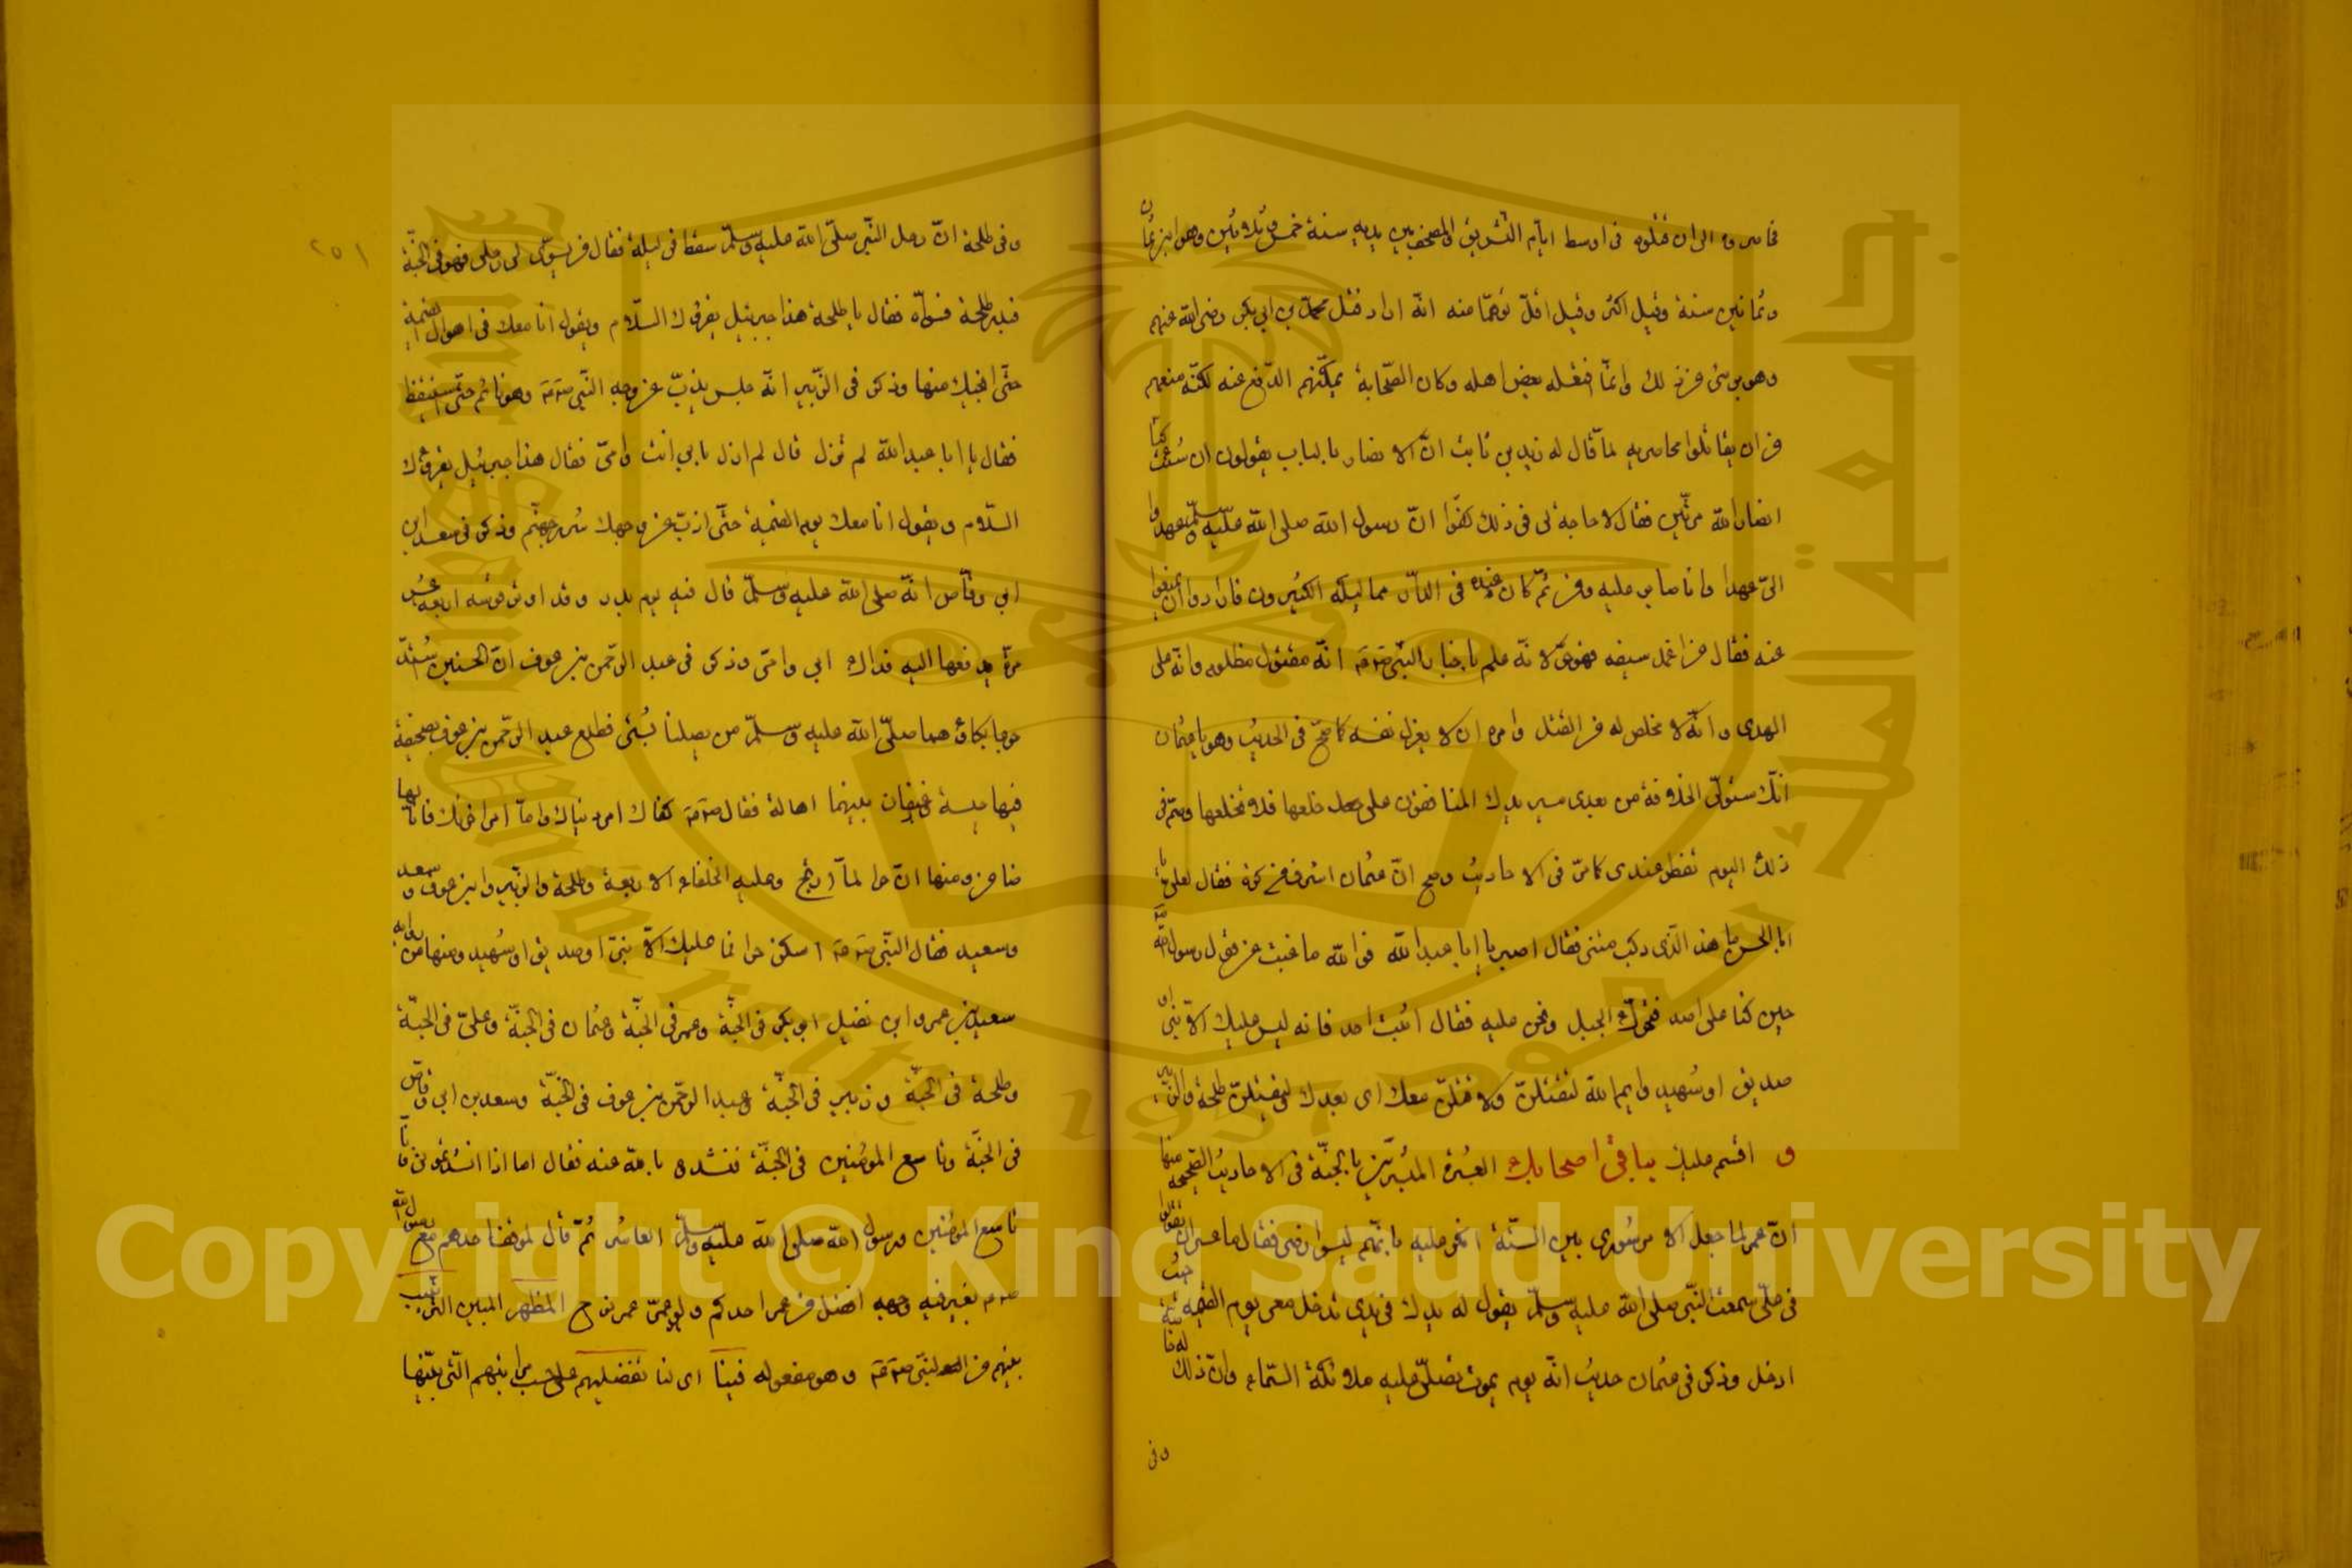 فحاصروه الى ان قتلوه فى اوسط ايام التشريق والمصحف بين يديه سنة خمس وثلاثين وهو ابن ثمان
وثمانين سنة وقيل اكثر وقيل اقل توهما منه انه اراد قتل محمد بن ابى بكر رضى الله عنهم
وهو برىء من ذلك وانما افتعله بعض اهله وكان الصحابة يمكنهم الدفع عنه لكنه منعهم
من ان يقاتلوا محاصريه لما قال له زيد بن ثابت ان الانصار بالباب يقولون ان شئت كنا
انصار الله مرتين فقال لا حاجة لى فى ذلك كفوا ان رسول الله صلى الله عليه وسلم عهد
الى عهدا وانا صابر عليه ومن ثم كان عنده فى الدار مماليكه الكثيرون فارادوا ان يمنعوا
عنه فقال من اغمد سيفه فهو حر لانه علم باخبار النبى صم انه مقتول مظلوم وانه على
الهدى وانه لا مخلص له من القتل وامره ان لا يعزل نفسه كما صح فى الحديث وهو يا عثمان
انك ستولى الخلافة من بعدى سيريدك المنافقون على خلعها فلا تخلعها وصم فى
ذلك اليوم تفطر عندى كما مر فى الاحاديث وصح ان عثمان اشرف من كوة فقال لعلى يا
ابا الحسن ما هذا الذى ركب متنى فقال اصبر يا ابا عبد الله فوالله ما غبت عن قول رسول الله صم
حين كنا على احد فتحرك الجبل ونحن عليه فقال اثبت احد فانه ليس عليك الا نبى او
صديق او شهيد وايم الله لتقتلن ولاقتلن معك اى بعدك وليقتلن طلحة والزبير
و اقسم عليك بباقى اصحابك العشرة المبشرين بالجنة فى الاحاديث الصحيحة منها
ان عمر لما جعل الامر شورى بين الستة فقال ما عسى ان تقولوا
فى على سمعت النبى صلى الله عليه وسلم يقول له يدك فى يدى تدخل معى يوم القيمة حيث
ادخل وذكر فى عثمان حديث انه يوم يموت تصلى عليه ملائكة السماء وان ذلك له خاصة
وفى
٢٥١
وفى طلحة ان رحل النبى صلى الله عليه وسلم سقط فى ليلة فقال من يسوى لى رحلى فهو فى الجنة
فبدر طلحة فسواه فقال يا طلحة هذا جبرئيل يقرئك السلام ويقول انا معك فى اهوال القيمة
حتى انجيك منها وذكر فى الزبير انه جلس يذب عن وجه النبى صم وهو نائم حتى استيقظ
فقال يا ابا عبد الله لم تزل قال لم ازل بابى انت وامى فقال هذا جبرئيل يقرئك
السلام ويقول انا معك يوم القيمة حتى اذب عن وجهك شرر جهنم وذكر فى سعد ابن
ابى وقاص انه صلى الله عليه وسلم قال فيه يوم بدر وقد اوتر قوسه اربع عشر
مرة يدفعها اليه فداك ابى وامى وذكر فى عبد الرحمن بن عوف ان الحسنين اشتد
جوعا بكاؤهما صلى الله عليه وسلم من يصلنا بشىء فطلع عبد الرحمن بن عوف بصحيفة
فيها حيسة ورغيفان بينهما اهالة فقال صم كفاك امر دنياك واما امر اخرتك فانا لها
ضامن ومنها ان حرا لما ارتج وعليه الخلفاء الاربعة وطلحة والزبير وابن عوف وسعد
وسعيد فقال النبى صم اسكن حرا فما عليك الا نبى او صديق او شهيد ومنها من رواية
سعيد بن عمرو ابن نفيل ابو بكر فى الجنة وعمر فى الجنة وعثمان فى الجنة وعلى فى الجنة
وطلحة فى الجنة وزبير فى الجنة وعبد الرحمن بن عوف فى الجنة وسعد بن ابى وقاص
فى الجنة وتاسع المؤمنين فى الجنة فنشدوه بالله عنه فقال اما اذا انشدتمونى فانا
تاسع المؤمنين ورسول الله صلى الله عليه وسلم العاشر ثم قال لموقف احدهم مع رسول الله
صم يغبر فيه وجهه افضل من عمر احدكم ولو عمر عمر نوح المظهر المبين الترتيب
بينهم من النبى صم وهو مفعوله فينا اى لنا تفضيلهم على حسب مراتبهم التى بينها